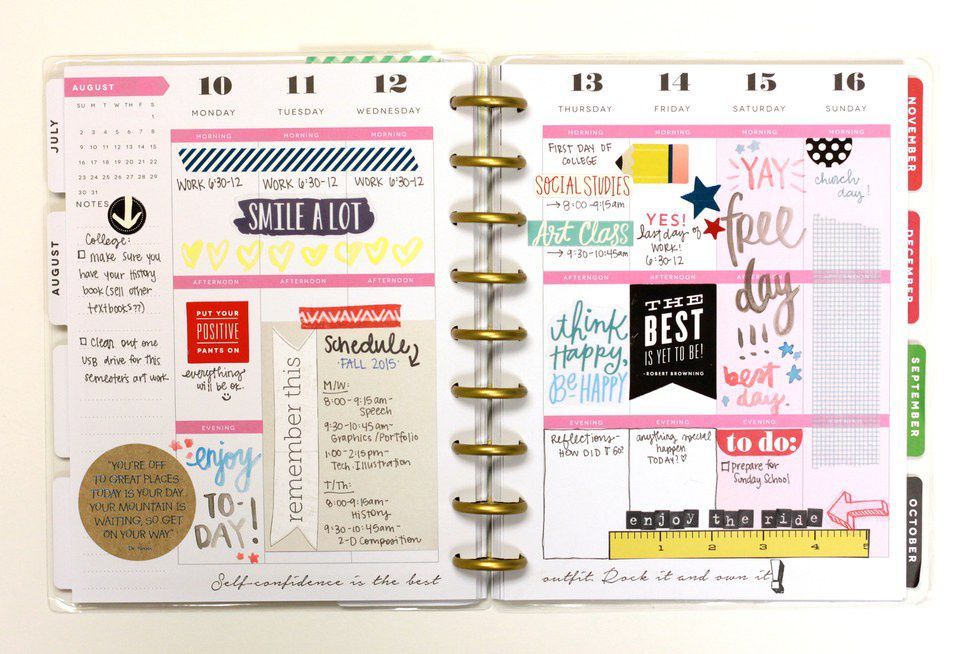 AUGUST
SU M T W TH F S
1
2 3 4 5 6 7 8
9 10 11 12 13 14 15
16 17 18 19 20 21 22
23 24 25 26 27 28 29
30 31
NOTES
College:
make sure you
have your History
book (sell other
textbooks??)
Clean out one
USB drive for this
semester's art work
"YOU'RE OFF
TO GREAT PLACES
TODAY IS YOUR DAY.
YOUR MOUNTAIN IS
WAITING, SO GET
ON YOUR WAY."
JULY
AUGUST
10
MONDAY
11
TUESDAY
12
WEDNESDAY
MORNING
MORNING
MORNING
WORK 6:30-12
WORK 6:30-12
WORK 6:30-12
SMILE A LOT
AFTERNOON
AFTERNOON
AFTERNOON
PUT YOUR
POSITIVE
PANTS ON
everything
will be ok.
EVENING
enjoy
TO-
DAY!
remember this
Schedule
FALL 2015
M/W:
8:00-9:15am-
Speech
9:30-10:45am-
Graphics/Portfolio
1:00-2:15pm-
Tech. Illustration
T/Th:
8:00-9:15am-
History
9:30-10:45am-
2-D Composition
Self-confidence is the best
13
THURSDAY
14
FRIDAY
15
SATURDAY
16
SUNDAY
MORNING
MORNING
MORNING
MORNING
FIRST DAY OF
COLLEGE
SOCIAL STUDIES
→ 8:00-9:15am
Art Class
→ 9:30-10:45am
YES!
last day of
WORK!
6:30-12
YAY
free
day
!!!
best
day.
church
day!
AFTERNOON
AFTERNOON
think
Happy,
BE HAPPY
THE
BEST
IS YET TO BE!
-ROBERT BROWNING-
EVENING
EVENING
EVENING
Reflections-
HOW DID IT GO?
anything special
happen
TODAY?
to do:
prepare for
Sunday School
enjoy the ride
1 2 3 4 5
outfit. Rock it and own it!
NOVEMBER
DECEMBER
SEPTEMBER
OCTOBER